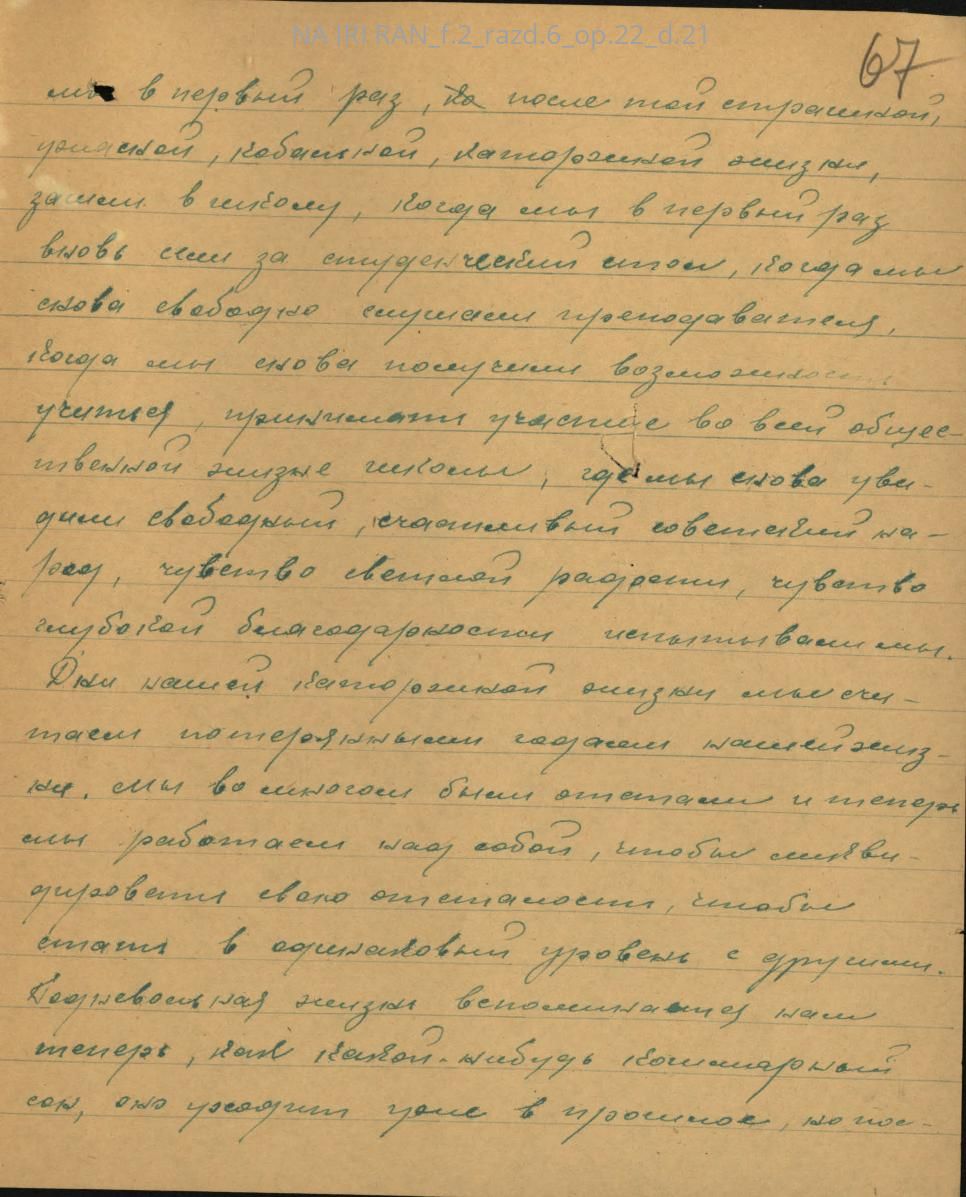 NA IRI RAN_f.2_razd.6_op.22_d.21
67
мы в первый раз, после той страшной,
ужасной, кабальной, каторжной жизни,
зашли в школу, когда мы в первый раз
вновь сели за студенческий стол, когда мы
снова свободно слушали преподавателя,
когда мы снова получили возможность
учиться, принимать участие во всей общес-
твенной жизне школы, где мы снова уви-
дили свободный, счастливый советский на-
род, чувство светлой радости, чувство
глубокой благодарности испытывали мы.
Дни нашей каторжной жизни мы счи-
таем потерянными годами нашей жиз-
ни. Мы во многом были отстали и теперь
мы работаем над собой, чтобы ликви-
дировать свою отсталость, чтобы
стать в одинаковый уровень с другими.
Подневольная жизнь вспоминается нам
теперь, как какой-нибудь кошмарный
сон, оно уходит уже в прошлое, но пос-